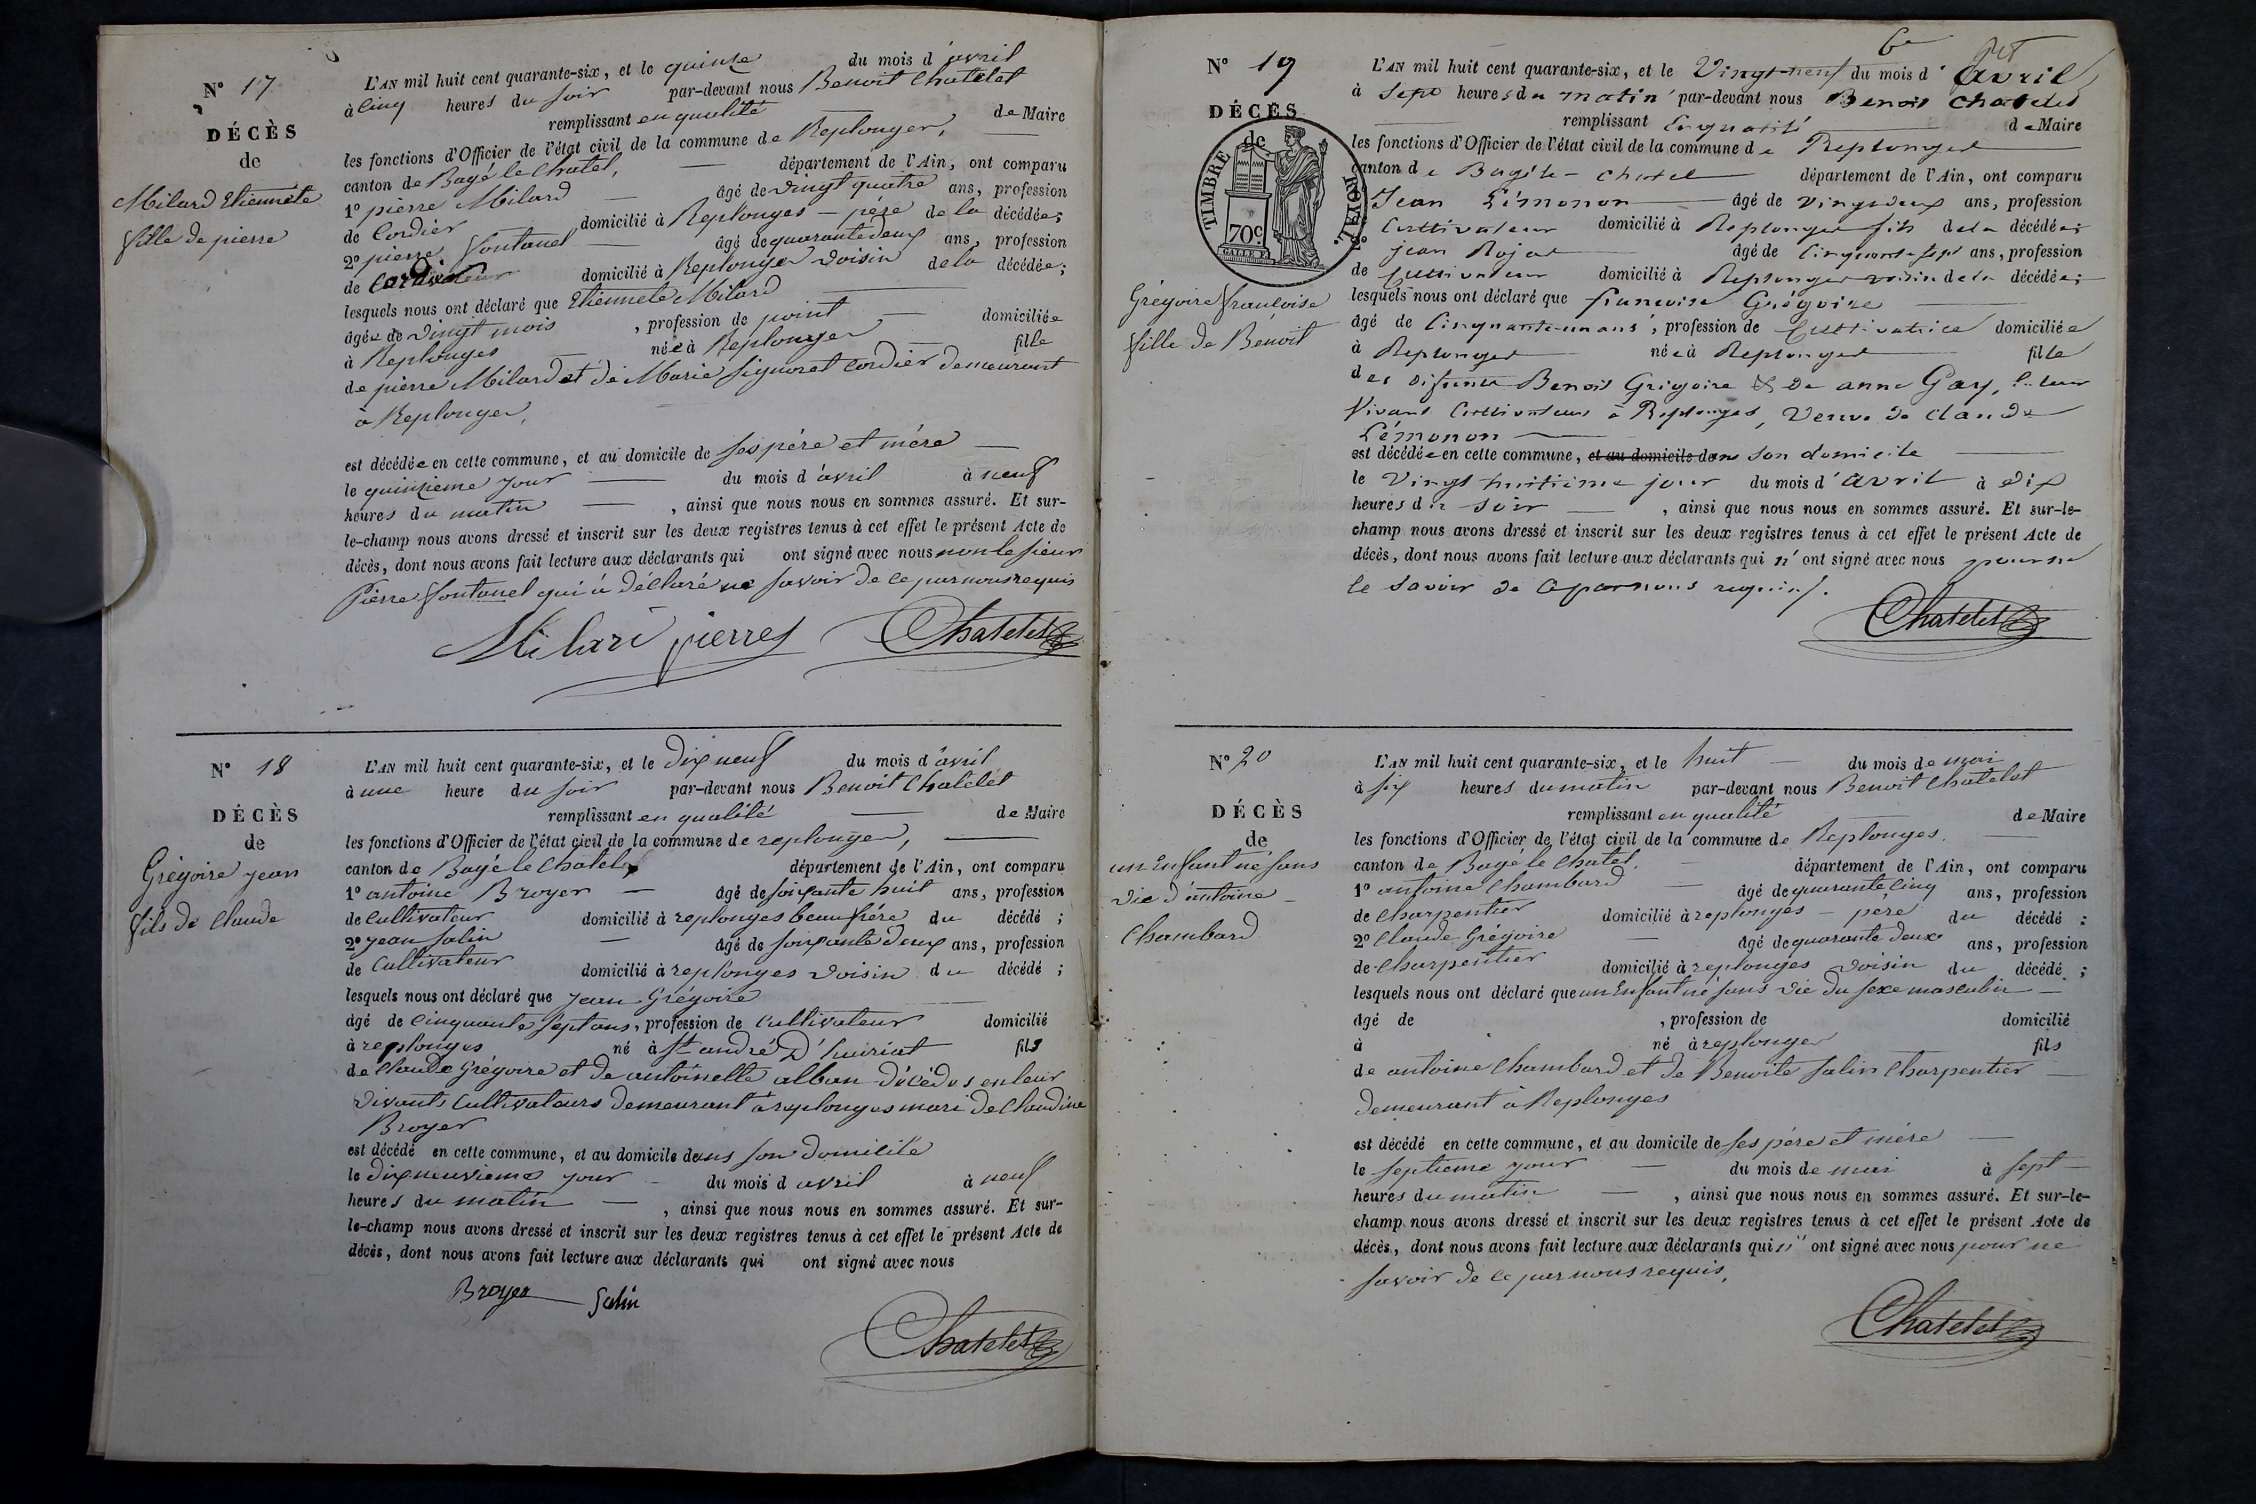 N° 17
DÉCÈS
de
Milard Etiennete
fille de pierre
L'AN mil huit cent quarante-six, et le quinze du mois d'avril
à cinq heures du soir par-devant nous Benoit Chatelet
remplissant en qualité de Maire
les fonctions d'Officier de l'état civil de la commune de Replonges,
canton de Bagé le Chatel, département de l'Ain, ont comparu
1° pierre Milard âgé de vingt quatre ans, profession
de Cordier domicilié à Replonges – père de la décédée;
2° pierre fontanel âgé de quarante deux ans, profession
de Cultivateur domicilié à Replonges voisin de la décédée;
lesquels nous ont déclaré que Etiennete Milard
âgée de vingt mois, profession de point domiciliée
à Replonges née à Replonges fille
de pierre Milard et de Marie Signoret Cordier demeurant
à Replonges,
est décédée en cette commune, et au domicile de ses père et mère
le quinzieme jour du mois d'avril à neuf
heures du matin, ainsi que nous nous en sommes assuré. Et sur-
le-champ nous avons dressé et inscrit sur les deux registres tenus à cet effet le présent Acte de
décès, dont nous avons fait lecture aux déclarants qui ont signé avec nous non le sieur
Pierre fontanel qui à déclaré ne savoir de ce par nous requis
Milard pierre Chatelet
N° 18
DÉCÈS
de
Grégoire jean
fils de Claude
L'AN mil huit cent quarante-six, et le dix neuf du mois d'avril
à une heure du soir par-devant nous Benoit Chatelet
remplissant en qualité de Maire
les fonctions d'Officier de l'état civil de la commune de replonges,
canton de Bagé le Chatel, département de l'Ain, ont comparu
1° antoine Broyer âgé de soixante huit ans, profession
de Cultivateur domicilié à replonges beau frère du décédé;
2° jean Salin âgé de soixante deux ans, profession
de Cultivateur domicilié à replonges voisin du décédé;
lesquels nous ont déclaré que jean Grégoire
âgé de Cinquante sept ans, profession de Cultivateur domicilié
à replonges né à St andré D'huiriat fils
de Claude Grégoire et de antoinette alban Décédés en leur
vivants Cultivateurs demeurant à replonges mari de Claudine
Broyer
est décédé en cette commune, et au domicile dans son domicile
le dix neuvieme jour du mois d'avril à neuf
heures du matin, ainsi que nous nous en sommes assuré. Et sur-
le-champ nous avons dressé et inscrit sur les deux registres tenus à cet effet le présent Acte de
décès, dont nous avons fait lecture aux déclarants qui ont signé avec nous
Broyer Salin
Chatelet
N° 19
DÉCÈS
de
TIMBRE ROYAL.
70c.
Grégoire françoise
fille de Benoit
L'AN mil huit cent quarante-six, et le Vingt-neuf du mois d'avril
à Sept heures du matin par-devant nous Benoit Chatelet
remplissant En qualité de Maire
les fonctions d'Officier de l'état civil de la commune de Replonges
canton de Bagé-le-chatel département de l'Ain, ont comparu
Jean Lémonon âgé de vingt deux ans, profession
Cultivateur domicilié à Replonges fils de la décédée;
2° jean Rojat âgé de Cinquante sept ans, profession
de Cultivateur domicilié à Replonges voisin de la décédée;
lesquels nous ont déclaré que françoise Grégoire
âgé de Cinquante-un ans, profession de Cultivatrice domiciliée
à Replonges née à Replonges fille
des défunts Benoit Grégoire & de anne Gay, leur
Vivant Cultivateurs à Replonges, Veuve de Claude
Lémonon
est décédée en cette commune, et au domicile dans son domicile
le Vingt huitieme jour du mois d'avril à dix
heures du Soir, ainsi que nous nous en sommes assuré. Et sur-le-
champ nous avons dressé et inscrit sur les deux registres tenus à cet effet le présent Acte de
décès, dont nous avons fait lecture aux déclarants qui n'ont signé avec nous pour ne
le savoir de ce par nous requis.
Chatelet
N° 20
DÉCÈS
de
un Enfant né sans
vie d'antoine
Chambard
L'AN mil huit cent quarante-six, et le huit du mois de mai
à six heures du matin par-devant nous Benoit Chatelet
remplissant en qualité de Maire
les fonctions d'Officier de l'état civil de la commune de Replonges.
canton de Bagé le Chatel. département de l'Ain, ont comparu
1° antoine Chambard âgé de quarante cinq ans, profession
de Charpentier domicilié à replonges – père du décédé;
2° Claude Grégoire âgé de quarante deux ans, profession
de Charpentier domicilié à replonges voisin du décédé;
lesquels nous ont déclaré que un Enfant né sans vie du sexe masculin
âgé de , profession de domicilié
à né à replonges fils
de antoine Chambard et de Benoite Salin Charpentier
demeurant à Replonges
est décédé en cette commune, et au domicile de ses père et mère
le septieme jour du mois de mai à sept
heures du matin, ainsi que nous nous en sommes assuré. Et sur-le-
champ nous avons dressé et inscrit sur les deux registres tenus à cet effet le présent Acte de
décès, dont nous avons fait lecture aux déclarants qui n'ont signé avec nous pour ne
savoir de ce par nous requis.
Chatelet